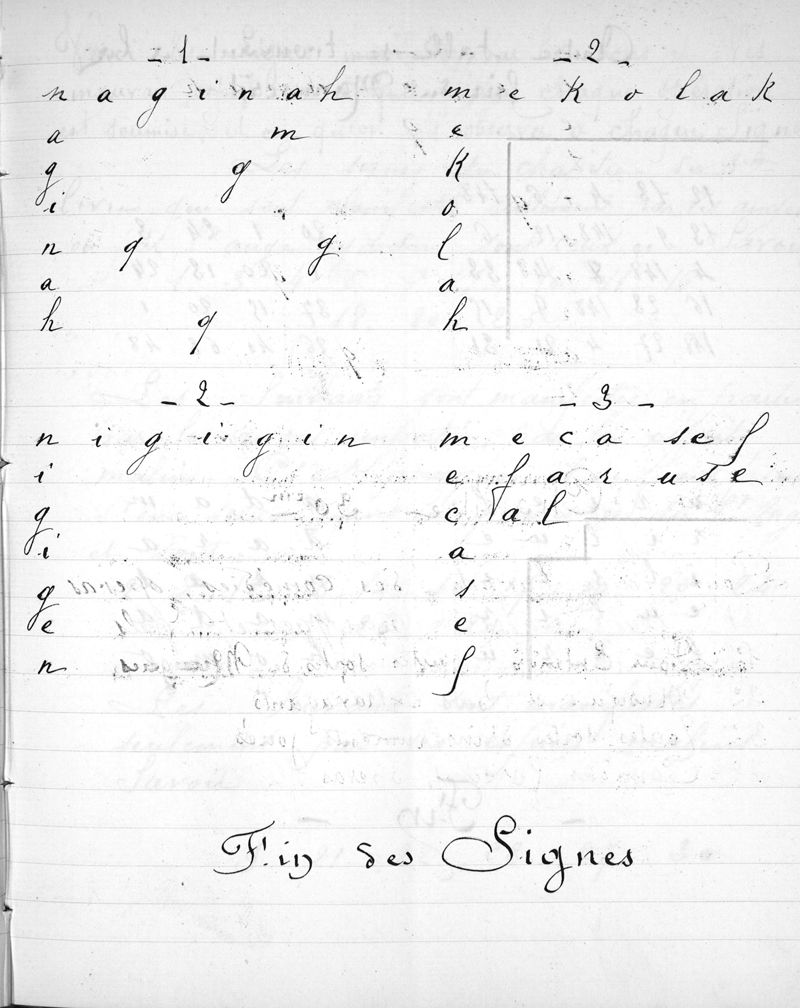 - 1 - - 2 -
n a g i n a h m e K o l a K
a m e
g g K
i o
n q g l
a a
h q h
- 2 - - 3 -
n i g i g i n m e c a s e f
i e f a r u s e
g c a l
i a
g s
e e
n f
Fin des Signes